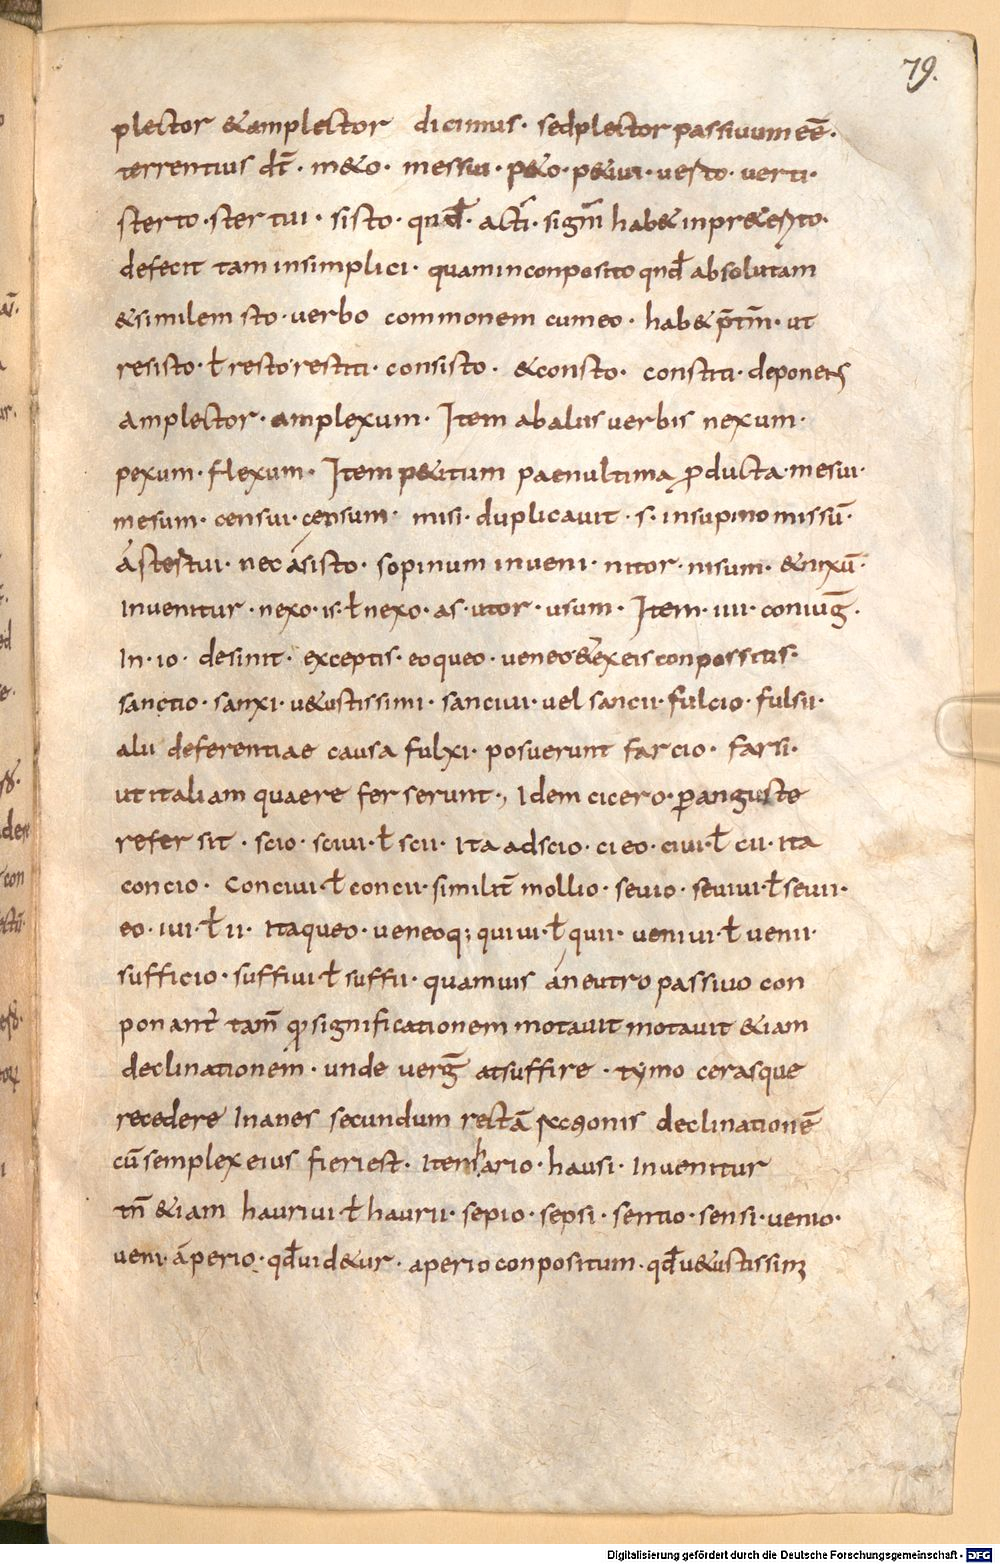 79.
plector &amplector dicimus· sedplector passiuum eē·
terrentius dt̄· m&o· messui· p&o· p&iui· uerto· uerti·
sterto· stertui· sisto· qnd̄· acti· sigm̄ hab& inpr&erito·
defecit tam insimplici· quaminconposito qnd̄ absolutam
&similem sto· uerbo commonem cumeo· hab& p̄tm̄· ut
resisto· ł resto· restiti· consisto· &consto· constiti· deponens
amplector· amplexum· Item abaliis uerbis nexum·
pexum· flexum· Item p&itum paenultima ꝓducta· mesui·
mesum· censui· censum· misi· duplicauit· s· insupino missū·
astestui· nec asisto· sopinum inueni· nitor· nisum· &nixū·
Inuenitur· nexo· is· ł nexo· as· utor· usum· Item· iiii· coniuḡ·
In· io· desinit· exceptis· eoqueo· ueneo&exeisconpossitis·
sanctio· sanxi· u&ustissimi· sanciui· uel sancii· fulcio· fulsii·
alii deferentiae causa fulxi· posuerunt farcio· farsi·
utitaliam quaere ferserunt·, Idem cicero· ꝑanguste
refersit· scio· sciui· ł scii· Ita adscio· cieo· ciui· ł cii· ita
concio· Conciui· ł concii· similit̄ mollio· seuio· seuiui· ł seuii·
eo· iui· ł ii· Itaqueo· ueneoq; quiui· ł quii· ueniui· ł uenii·
sufficio· suffiui· ł suffii· quamuis aneutro passiuo con
ponant̄ tam̄ ꝙ significationem motauit motauit &iam
declinationem· unde uerg̅ atsuffire· tymo cerasque
recedere Inanes secundum rectā declinationē
cū semplex eius fieri est· Item hario· hausi· Inuenitur
tn̄ &iam hauriui· ł haurii· sepio· sepsi· sentio· sensi· uenio·
ueni· āperio· qd̄uid&ur· aperioconpositum· qd̄u&ustissim
Digitalisierung gefördert durch die Deutsche Forschungsgemeinschaft - DFG